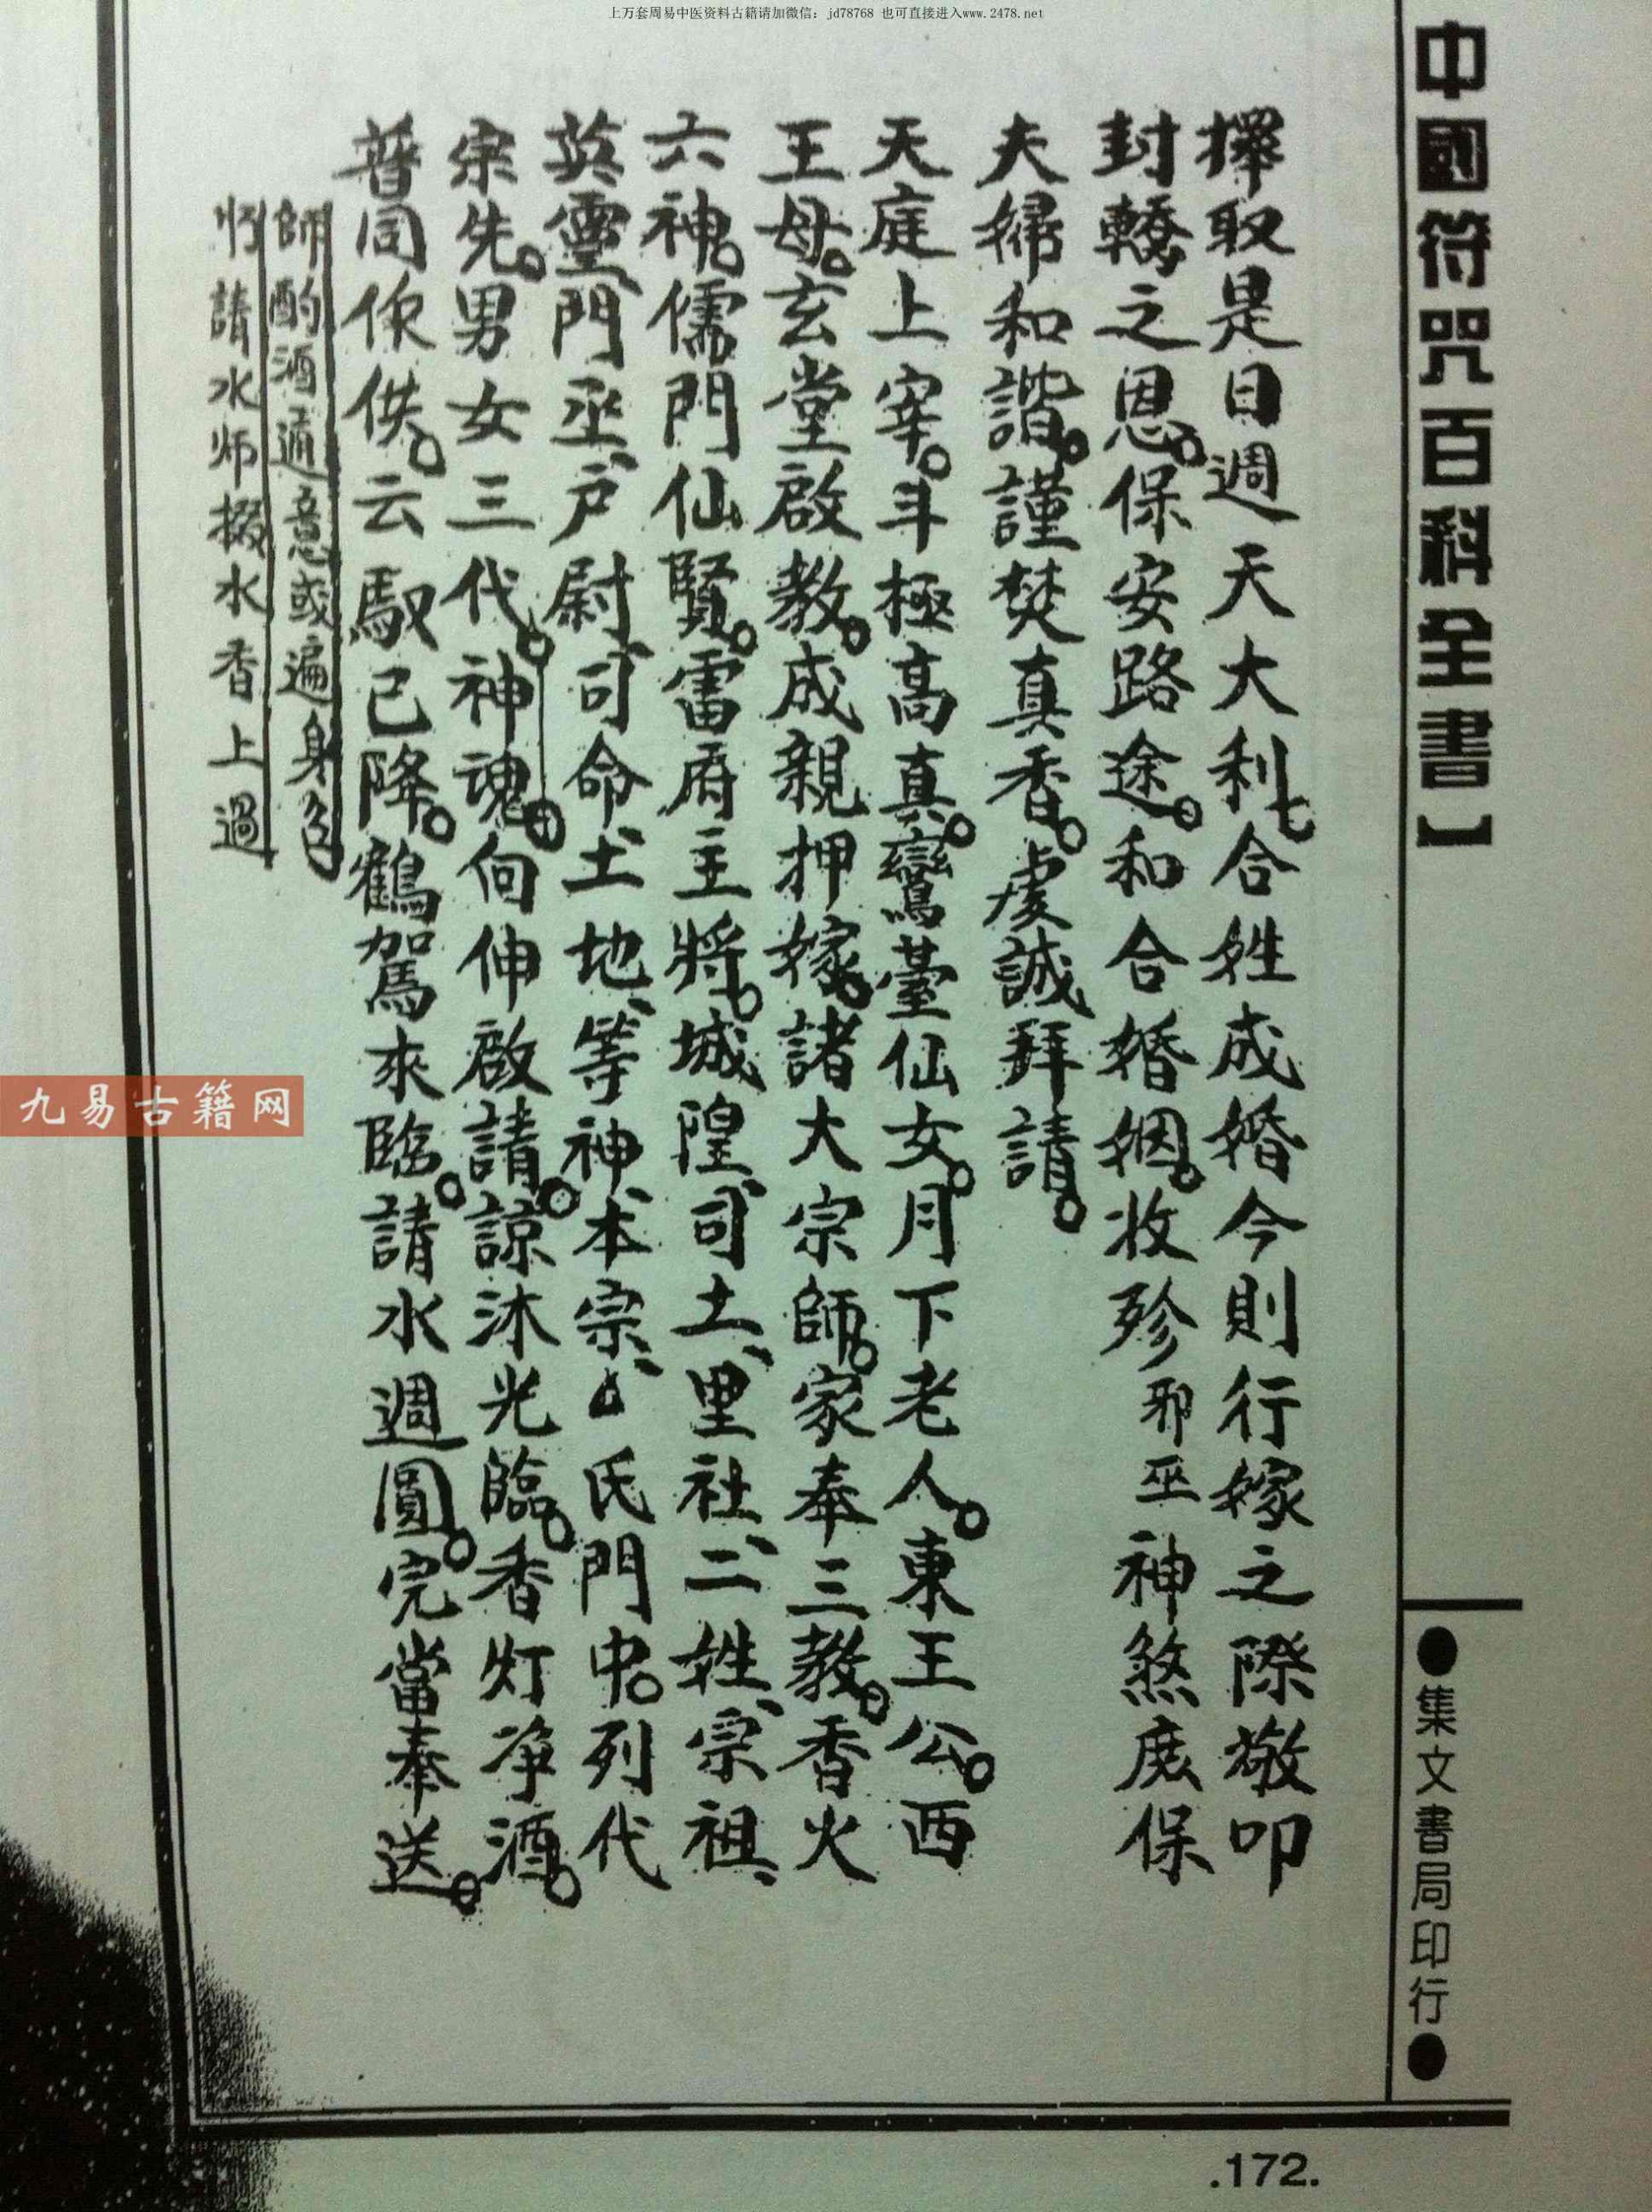 上万套周易中医资料古籍请加微信：jd78768 也可直接进入www.2478.net
中國符咒百科全書】
●集文書局印行●
擇取是日週天大利合姓成婚今則行嫁之際敬叩
封轎之恩。保安路途。和合婚姻。收殄邪巫神煞庶保
夫婦和諧。謹焚真香。虔誠拜請。
天庭上宰。斗極高真。鸞臺仙女。月下老人。東王公。西
王母。玄堂啟教。成親押嫁。諸大宗師。家奉三教。香火
六神。儒門仙賢。雷府主將。城隍、司土、里社、二姓、宗祖、
英靈、門丞、戶尉、司命、土地、等神、本宗、厶氏門中。列代
宗先。男女三代。神魂。伺伸啟請。諒沐光臨。香灯净酒。
普同作供。云馭已降。鶴駕來臨。請水週圓。完當奉送。
師酌酒適意或遍身色
請水师掇水香上過
九易古籍网
.172.